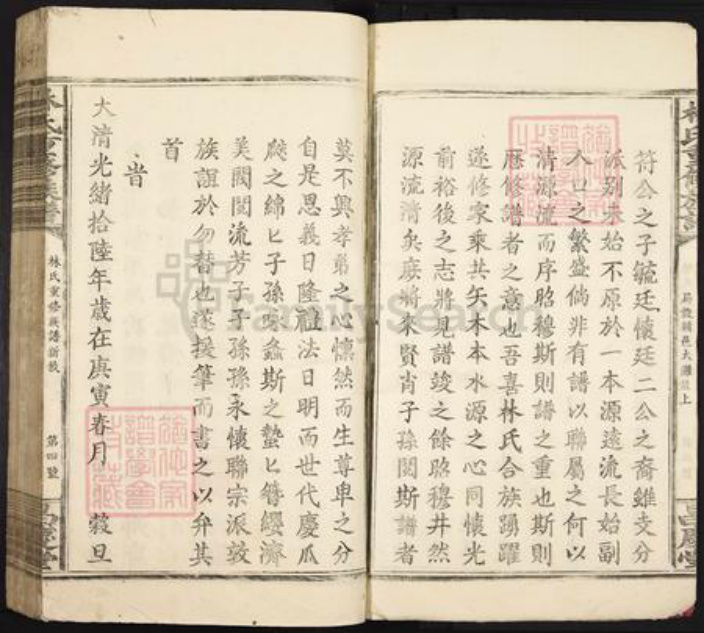 符公之子毓廷懷廷二公之裔雖支分
派別未始不原於一本源遠流長始副
人口之繁盛倘非有譜以聯屬之何以
清源流而序昭穆斯則譜之重也斯則
歷修譜者之意也吾喜林氏合族踴躍
遂修家乘共矢木本水源之心同懷光
前裕後之志將見譜竣之餘昭穆井然
源流清矣庶將來賢肖子孫閱斯譜者
莫不興孝弟之心懍然而生尊卑之分
自是恩義日隆禮法日明而世代慶瓜
瓞之綿匕子孫咏螽斯之蟄匕簪纓濟
美閥閱流芳子子孫孫永懷聯宗派敦
族誼於勿替也遂援筆而書之以弁其
首
旹
大清光緒拾陸年歲在庚寅春月 穀旦
林氏重修族譜
林氏重修族譜新敘
第四號
昌慶堂
林氏重修族譜
上
昌慶堂
FamilySearch